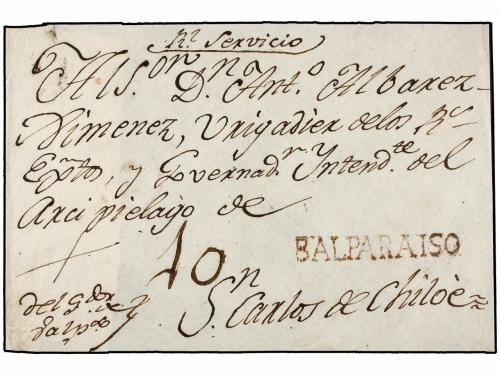 Rl Servicio
Al S.or Dn. Ant.o Albarez
Ximenez, Vrigadier delos Rs
Expto, y Governad.r Intend.te del
Arcipielago de
10
BALPARAISO
Sn. Carlos de Chilòe
del Gdor de
Valpso